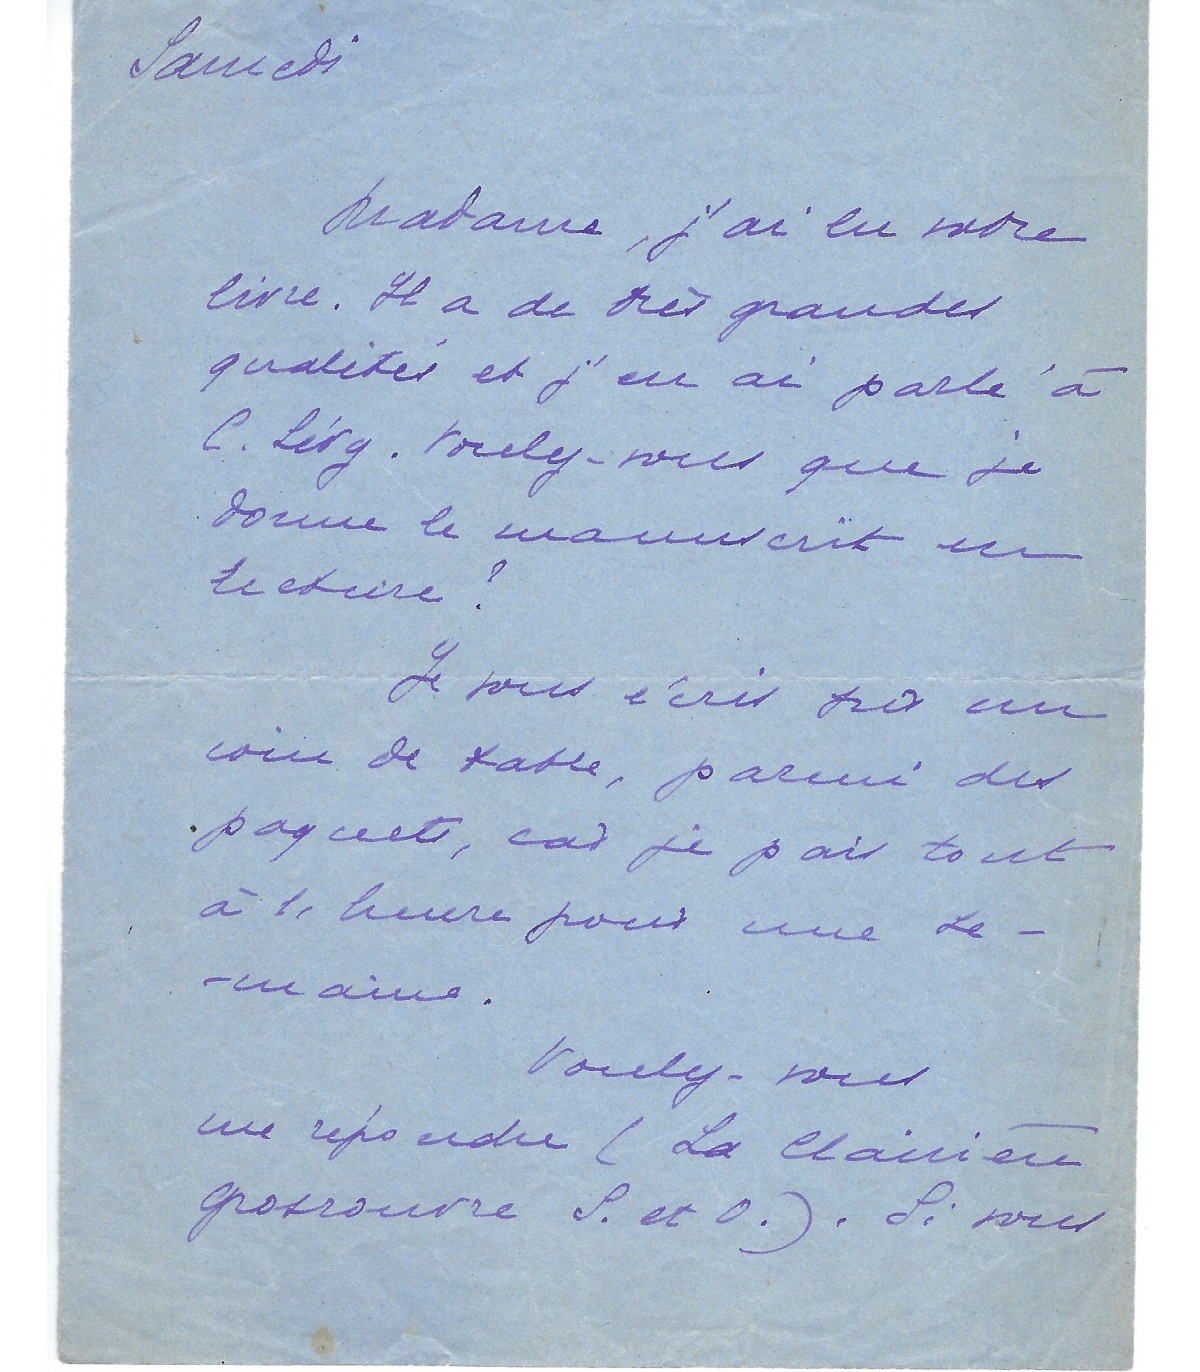 Samedi
Madame, j'ai lu votre
livre. Il a de très grandes
qualités et j'en ai parlé à
C. Lévy. Voulez-vous que je
donne le manuscrit en
lecture ?
Je vous écris sur un
coin de table, parmi des
paquets, car je pars tout
à l'heure pour une se-
-maine.
Voulez-vous
me répondre (La Clairière
Grosrouvre S. et O.). Si vous